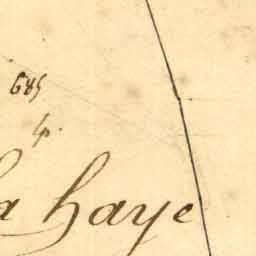 685
la haye